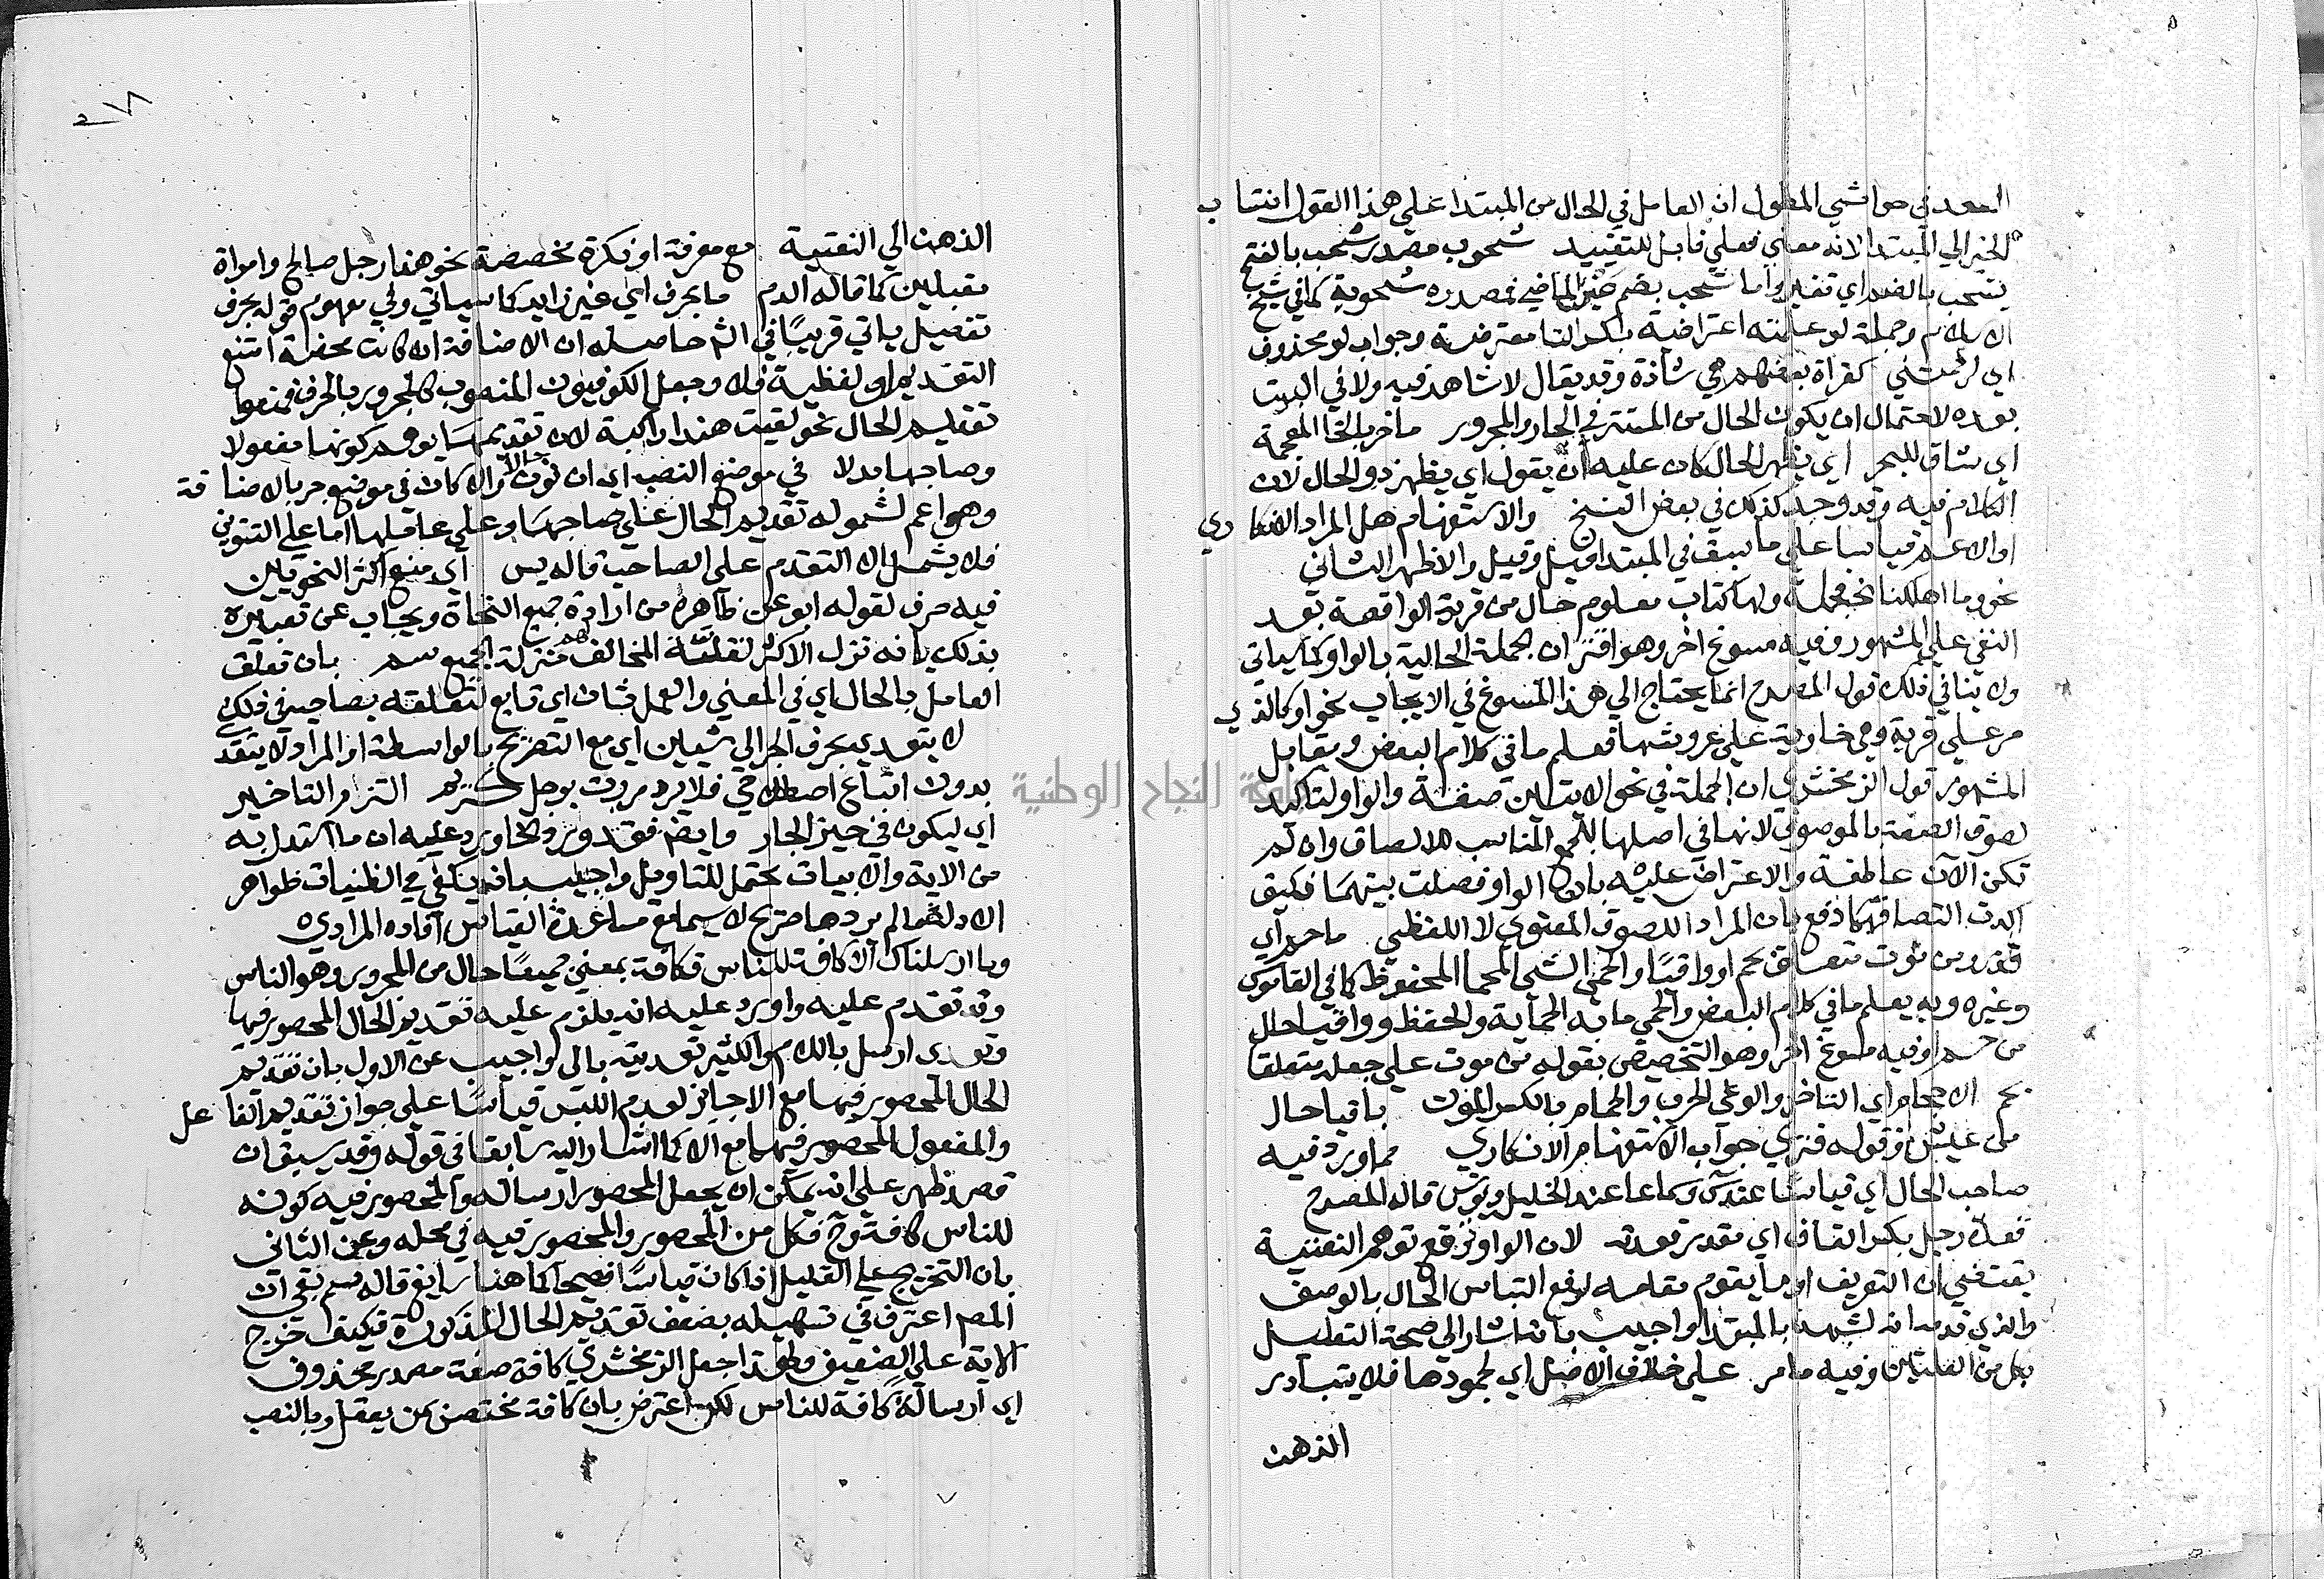 السعد في حواشي المطول ان العامل في الحال من المبتدا على هذا القول انتساب
الخبر الي المبتدا لانه معني فعلي قابل للتقييد شحوب مصدر شحب بالفتح
يشحب بالضم اي تغير واما شحب بضم عين الماضي فمصدره شحوبة كما في شيخ
الاسلام وجملة لو علمته اعتراضية بكسر التا معترضة وجواب لو محذوف
اي لرحمتني كقراة بعضهم هي شاذة وقد يقال لا شاهد فيه ولا في البيت
بعده لاحتمال ان يكون الحال من المستتر في الجار والمجرور ماخر بالخا المعجمة
اي شاق للبحر اي يظهر الحال كان عليه ان يقول اي يظهر ذو الحال لان
الكلام فيه وقد وجد كذلك في بعض النسخ والاستفهام هل المراد الانكاري
او الاعم قياسا على ما سبق في المبتدا قيل وقيل والاظهر الثاني
نحو وما اهلكنا الخ فجملة ولها كتاب معلوم حال من قرية الواقعة بعد
النفي على المشهور وفيه مسوغ اخر وهو اقتران الجملة الحالية بالواو كما ياتي
ولا ينافي ذلك قول المصرح انما يحتاج الي هذا المسوغ في الايجاب نحو او كالذي
مر على قرية وهي خاوية على عروشها فعلم ما في كلام البعض ومقابل
المشهور قول الزمخشري ان الجملة في نحو الايتين صفة والواو لتاكيد
لصوق الصفة بالموصوف لانها في اصلها للجمع المناسب للالصاق وان لم
تكن الآن عاطفة والاعتراض عليه بان الواو فصلت بينهما فكيف
اكدت التصاقهما دفع بان المراد اللصوق المعنوي لا اللفظي ما حم اي
قدر ومن موت متعلق بحم او واقيا والحمي الشي المحما المحفوظ كما في القاموس
وغيره وبه يعلم ما في كلام البعض والحمي ما به الحماية والحفظ وواقيا حال
من حمي وفيه مسوغ اخر وهو التخصيص بقوله من موت على جعله متعلقا
بحم الاحجام اي التاخر والوغي الحرب والحمام بالكسر الموت باقيا حال
من عيش وقوله فتري جواب الاستفهام الانكاري مما ورد فيه
صاحب الحال اي قياسا عند س وسماعا عند الخليل ويونس قاله المصرح
قعدة رجل بكسر القاف اي مقدر قعدته لان الواو ترفع توهم النعتية
يقتضي ان التعريف او ما يقوم مقامه لدفع التباس الحال بالوصف
والذي قدمه انه لشبهه بالمبتدا واجيب بانه اشار الي صحة التعليل
بكل من العلتين وفيه ما مر على خلاف الاصل اي لجمودها فلا يتبادر
الذهن
الذهن الي النعتية مع معرفة او نكرة مخصصة نحو هذا رجل صالح وامراة
مقبلين كما قاله الدم ما بحرف اي غير زايد كما سياتي وفي مفهوم قوله بحرف
تفصيل ياتي قريبا في الشرح حاصله ان الاضافة ان كانت محضة امتنع
التقديم او لفظية فلا وجعل الكوفيون المنصوب كالمجرور بالحرف فمنعوا
تقديم الحال نحو لقيت هندا راكبة لان تقديمها يوهم كونها مفعولا
وصاحبها بدلا في موضع النصب اي ان نون حال والا كان في موضع جر بالاضافة
وهو اعم لشموله تقديم الحال على صاحبها وعلى عاملها اما على التنوين
فلا يشمل الا التقدم على الصاحب قاله يس اي منع اكثر النحويين
فيه صرف لقوله ابو عن ظاهره من ارادة جميع النحاة ويجاب عن تعبيره
بذلك بانه نزل الاكثر لقلة المخالف لهم منزلة الجميع سم بان تعلق
العامل بالحال اي في المعني والعمل ثان اي تابع لتعلقه بصاحبه في ذلك
لا يتعدي بحرف الجر الي شيين اي مع التصريح بالواسطة او المراد لا يتعد
بدون اتباع اصطلاحي فلا يرد مررت برجل كريم التزام التاخير
اي ليكون في حيز الجار وايضا فقد ورد الخ اورد عليه ان ما استدل به
من الاية والابيات محتمل للتاويل واجيب بانه يكفي في الظنيات ظواهر
الادلة ما لم يردها صريح لا سيما مع مساعدة القياس افاده المرادي
وما ارسلناك الا كافة للناس فكافة بمعني جميعا حال من المجرور وهو الناس
وقد تقدم عليه واورد عليه انه يلزم عليه تقديم الحال المحصور فيها
وتعدي ارسل باللام والكثير تعديته بالي واجيب عن الاول بان تقديم
الحال المحصور فيها مع الا جايز لعدم اللبس قياسا على جواز تقديم الفاعل
والمفعول المحصور فيهما مع الا كما اشار اليه سابقا في قوله وقد يسبق ان
قصد ظهر على انه يمكن ان يجعل المحصور ارساله والمحصور فيه كونه
للناس كافة وح فكل من المحصور والمحصور فيه في محله وعن الثاني
بان التخريج على القليل اذا كان قياسا فصيحا كما هنا سايغ قاله سم بقي ان
المصم اعترف في تسهيله بضعف تقديم الحال المذكورة فكيف خرج
الاية على الضعيف ولهذا جعل الزمخشري كافة صفة مصدر محذوف
اي ارسالة كافة للناس لكن اعترض بان كافة مختصة بمن يعقل وبالنصب
جامعة النجاح الوطنية